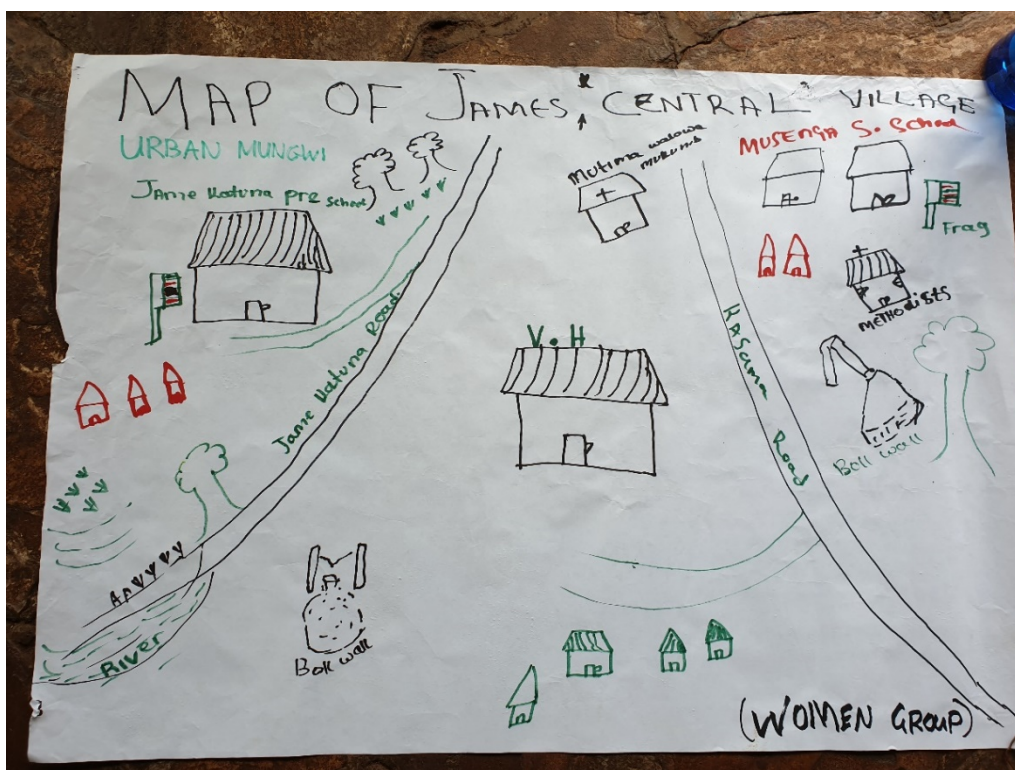 MAP OF JAMES CENTRAL VILLAGE
URBAN MUNGWI
Jame Katuna pre school
Mutima walowa
MUSENGA S. School
Frag
METHODISTS
V.H
Jame Katuna Road
KASama Road
Boll wall
RIVER
Boll wall
(WOMEN GROUP)